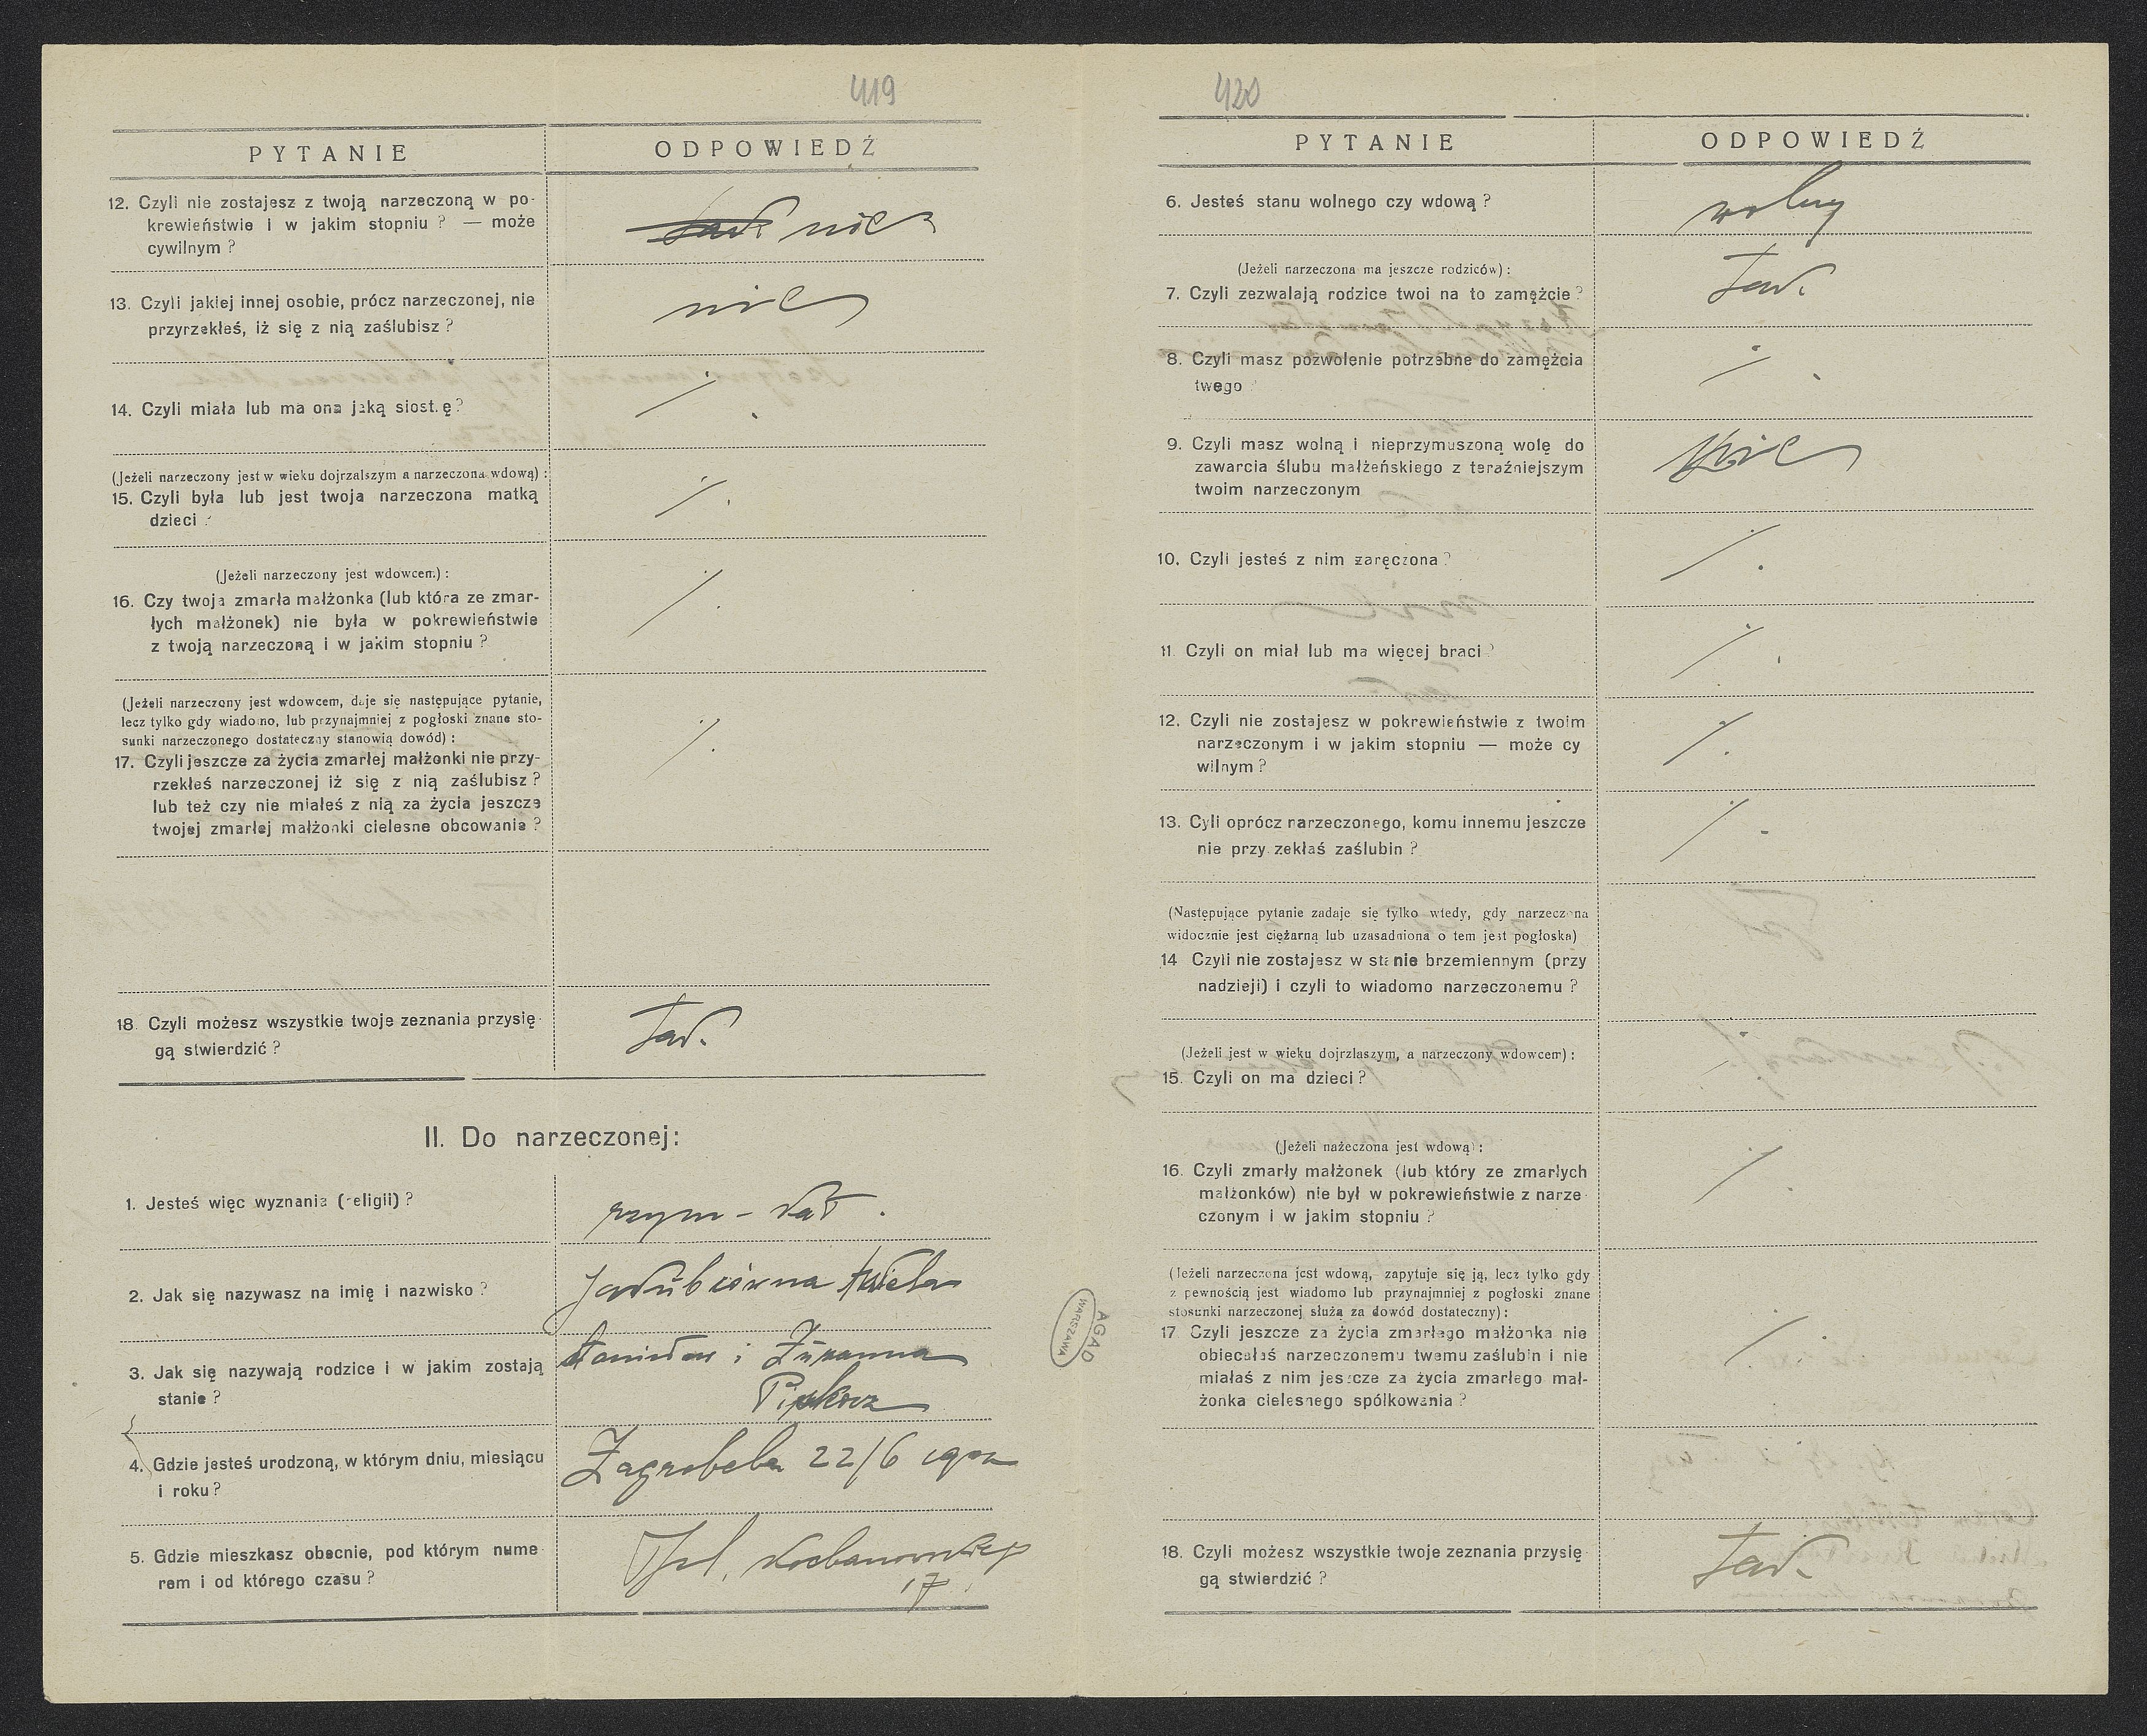 419
PYTANIE
ODPOWIEDŹ
12. Czyli nie zostajesz z twoją narzeczoną w po-
krewieństwie i w jakim stopniu? — może
cywilnym?
nie
13. Czyli jakiej innej osobie, prócz narzeczonej, nie
przyrzekłeś, iż się z nią zaślubisz?
nie
14. Czyli miała lub ma ona jaką siost.ę?
(Jeżeli narzeczony jest w wieku dojrzalszym a narzeczona wdową):
15. Czyli była lub jest twoja narzeczona matką
dzieci?
(Jeżeli narzeczony jest wdowcem):
16. Czy twoja zmarła małżonka (lub która ze zmar-
łych małżonek) nie była w pokrewieństwie
z twoją narzeczoną i w jakim stopniu?
(Jeżeli narzeczony jest wdowcem, daje się następujące pytanie,
lecz tylko gdy wiadomo, lub przynajmniej z pogłoski znane sto-
sunki narzeczonego dostateczny stanowią dowód):
17. Czyli jeszcze za życia zmarłej małżonki nie przy-
rzekłeś narzeczonej iż się z nią zaślubisz?
lub też czy nie miałeś z nią za życia jeszcze
twojej zmarłej małżonki cielesne obcowanie?
18. Czyli możesz wszystkie twoje zeznania przysię-
gą stwierdzić?
tak.
II. Do narzeczonej:
1. Jesteś więc wyznania (religii)?
rzym-kat.
2. Jak się nazywasz na imię i nazwisko?
Jakubiówna Aniela
3. Jak się nazywają rodzice i w jakim zostają
stanie?
i Zuzanna
4. Gdzie jesteś urodzoną, w którym dniu, miesiącu
i roku?
Zagrobela 22/6
5. Gdzie mieszkasz obecnie, pod którym nume-
rem i od którego czasu?
Kochanowskiego
17
AGAD
WARSZAWA
420
PYTANIE
ODPOWIEDŹ
6. Jesteś stanu wolnego czy wdową?
wolny
(Jeżeli narzeczona ma jeszcze rodziców):
7. Czyli zezwalają rodzice twoi na to zamężcie?
tak.
8. Czyli masz pozwolenie potrzebne do zamężcia
twego?
9. Czyli masz wolną i nieprzymuszoną wolę do
zawarcia ślubu małżeńskiego z teraźniejszym
twoim narzeczonym
nie
10. Czyli jesteś z nim zaręczona?
11. Czyli on miał lub ma więcej braci?
12. Czyli nie zostajesz w pokrewieństwie z twoim
narzeczonym i w jakim stopniu — może cy
wilnym?
13. Cyli oprócz narzeczonego, komu innemu jeszcze
nie przy.zekłaś zaślubin?
(Następujące pytanie zadaje się tylko wtedy, gdy narzeczona
widocznie jest ciężarną lub uzasadniona o tem jest pogłoska)
14 Czyli nie zostajesz w stanie brzemiennym (przy
nadzieji) i czyli to wiadomo narzeczonemu?
(Jeżeli jest w wieku dojrzlaszym, a narzeczony wdowcem):
15. Czyli on ma dzieci?
(Jeżeli nażeczona jest wdową):
16. Czyli zmarły małżonek (lub który ze zmarłych
małżonków) nie był w pokrewieństwie z narze-
czonym i w jakim stopniu?
(Jeżeli narzeczona jest wdową, zapytuje się ją, lecz tylko gdy
z pewnością jest wiadomo lub przynajmniej z pogłoski znane
stosunki narzeczonej służą za dowód dostateczny):
17 Czyli jeszcze za życia zmarłego małżonka nie
obiecałaś narzeczonemu twemu zaślubin i nie
miałaś z nim jeszcze za życia zmarłego mał-
żonka cielesnego spółkowania?
18. Czyli możesz wszystkie twoje zeznania przysię-
gą stwierdzić?
tak.